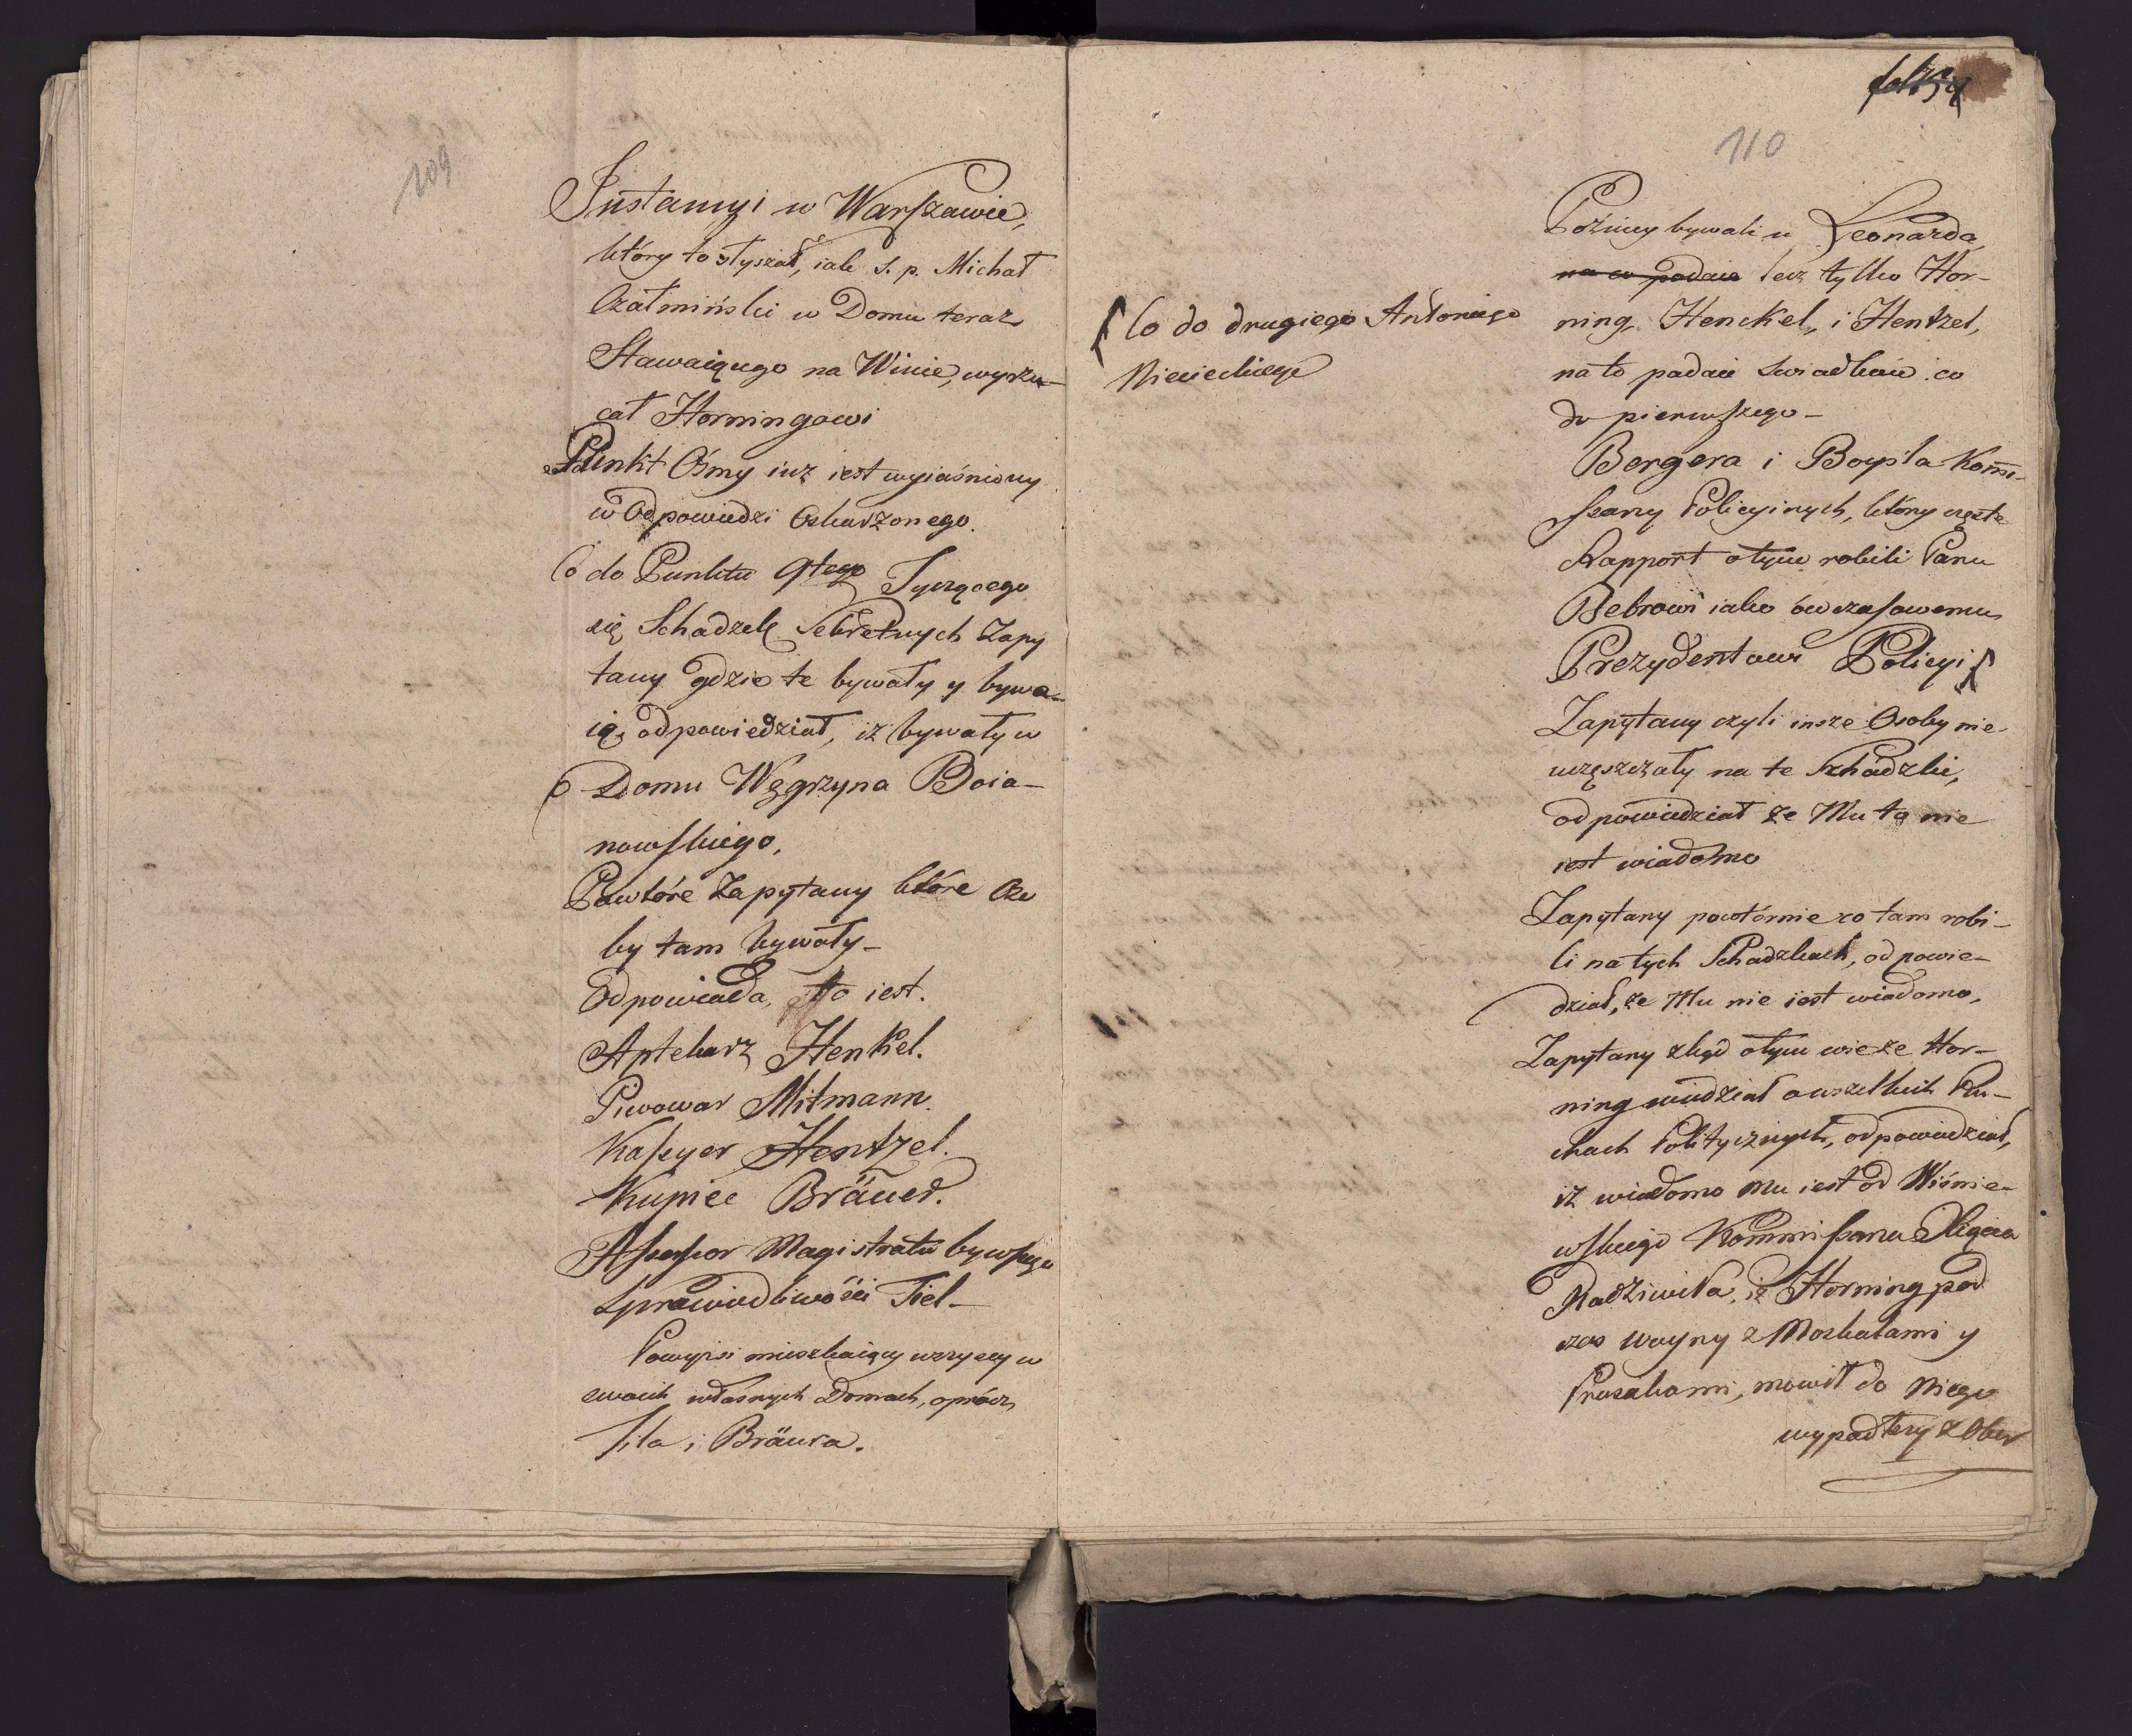 109
Instancyi w Warszawie,
który to słyszał, iak s. p. Michał
Czałmiński w Domu teraz
Stawaiącego na Winie, wyrzu-
cał Horningowi
Punkt Ósmy iuz iest wyiaśniony
w Odpowiedzi Oskarzonego.
Co do Punktu 9tego Tyczącego
się Schadzek Sekretnych Zapy
tany gdzie te bywały y bywa-
ią, odpowiedział, iż bywały w
Domu Węgrzyna Boia-
nowskiego,
Powtóre Zapytany które Oso
by tam bywały-
Odpowiada, to iest.
Aptekarz Henkel.
Piwowar Mitmann.
Kassyer Hentzel.
Kupiec Bräuer.
Assessor Magistratu bywszego
Sprawiedliwości Tiel-
Powyżsi mieszkaiący wszyscy w
swoich własnych Domach, oprócz
Tila i Bräura.
110
Pozniey bywali u Leonarda,
na co podaie lecz tylko Hor-
ning, Henckel, i Hentzel,
na to podaie Swiadków co
do pierwszego-
Bergera i Boysla Kommi-
ssarzy Policyinych, którzy częste
Rapport o tym robili Panu
Bebrowi iako ówczasowemu
Prezydentowi Policyi
Co do drugiego Antoniego
Niesieckiego
Zapytany czyli insze Osoby nie
uczęszczały na te Schadzki,
odpowiedział ze Mu to nie
iest wiadomo
Zapytany powtórnie co tam robi-
li na tych Schadzkach, odpowie-
dział, ze Mu nie iest wiadomo,
Zapytany zkąd o tym wie ze Hor-
ning wiedział o wszelkich Ru-
chach Politycznych, odpowiedział,
iż wiadomo mu iest od Wiśnie-
wskiego Kommissarza Xiążęcia
Radziwiła, iż Horning pod
czas Woyny z Moskalami y
Prusakami, mowił do Niego